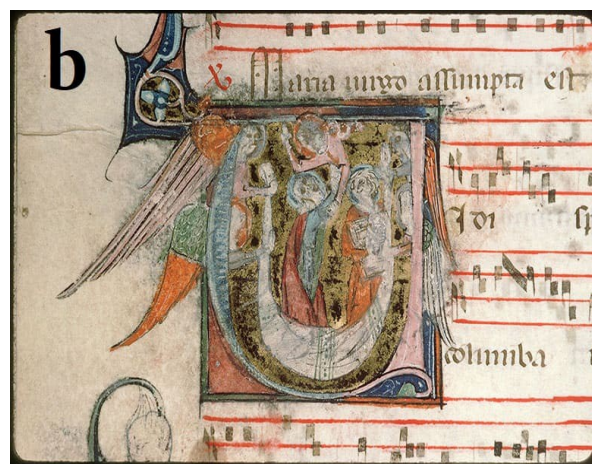 b
℣ Maria uirgo assumpta est
VIdi sp
columba